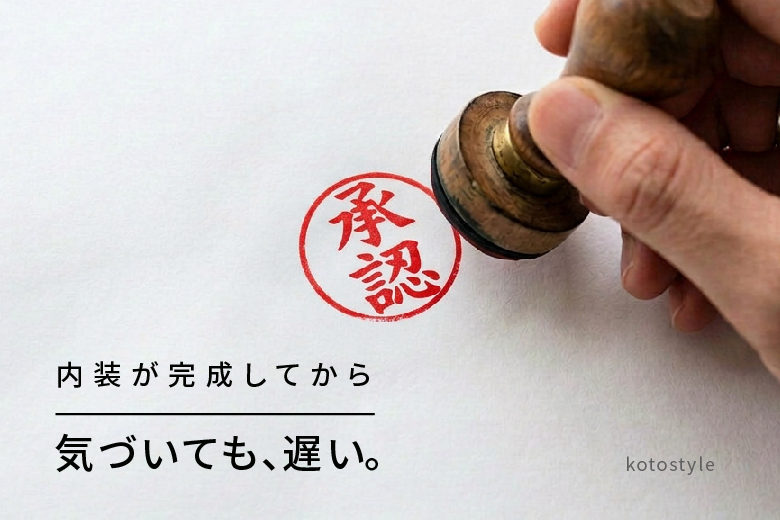 承認
内装が完成してから
気づいても、遅い。
kotostyle